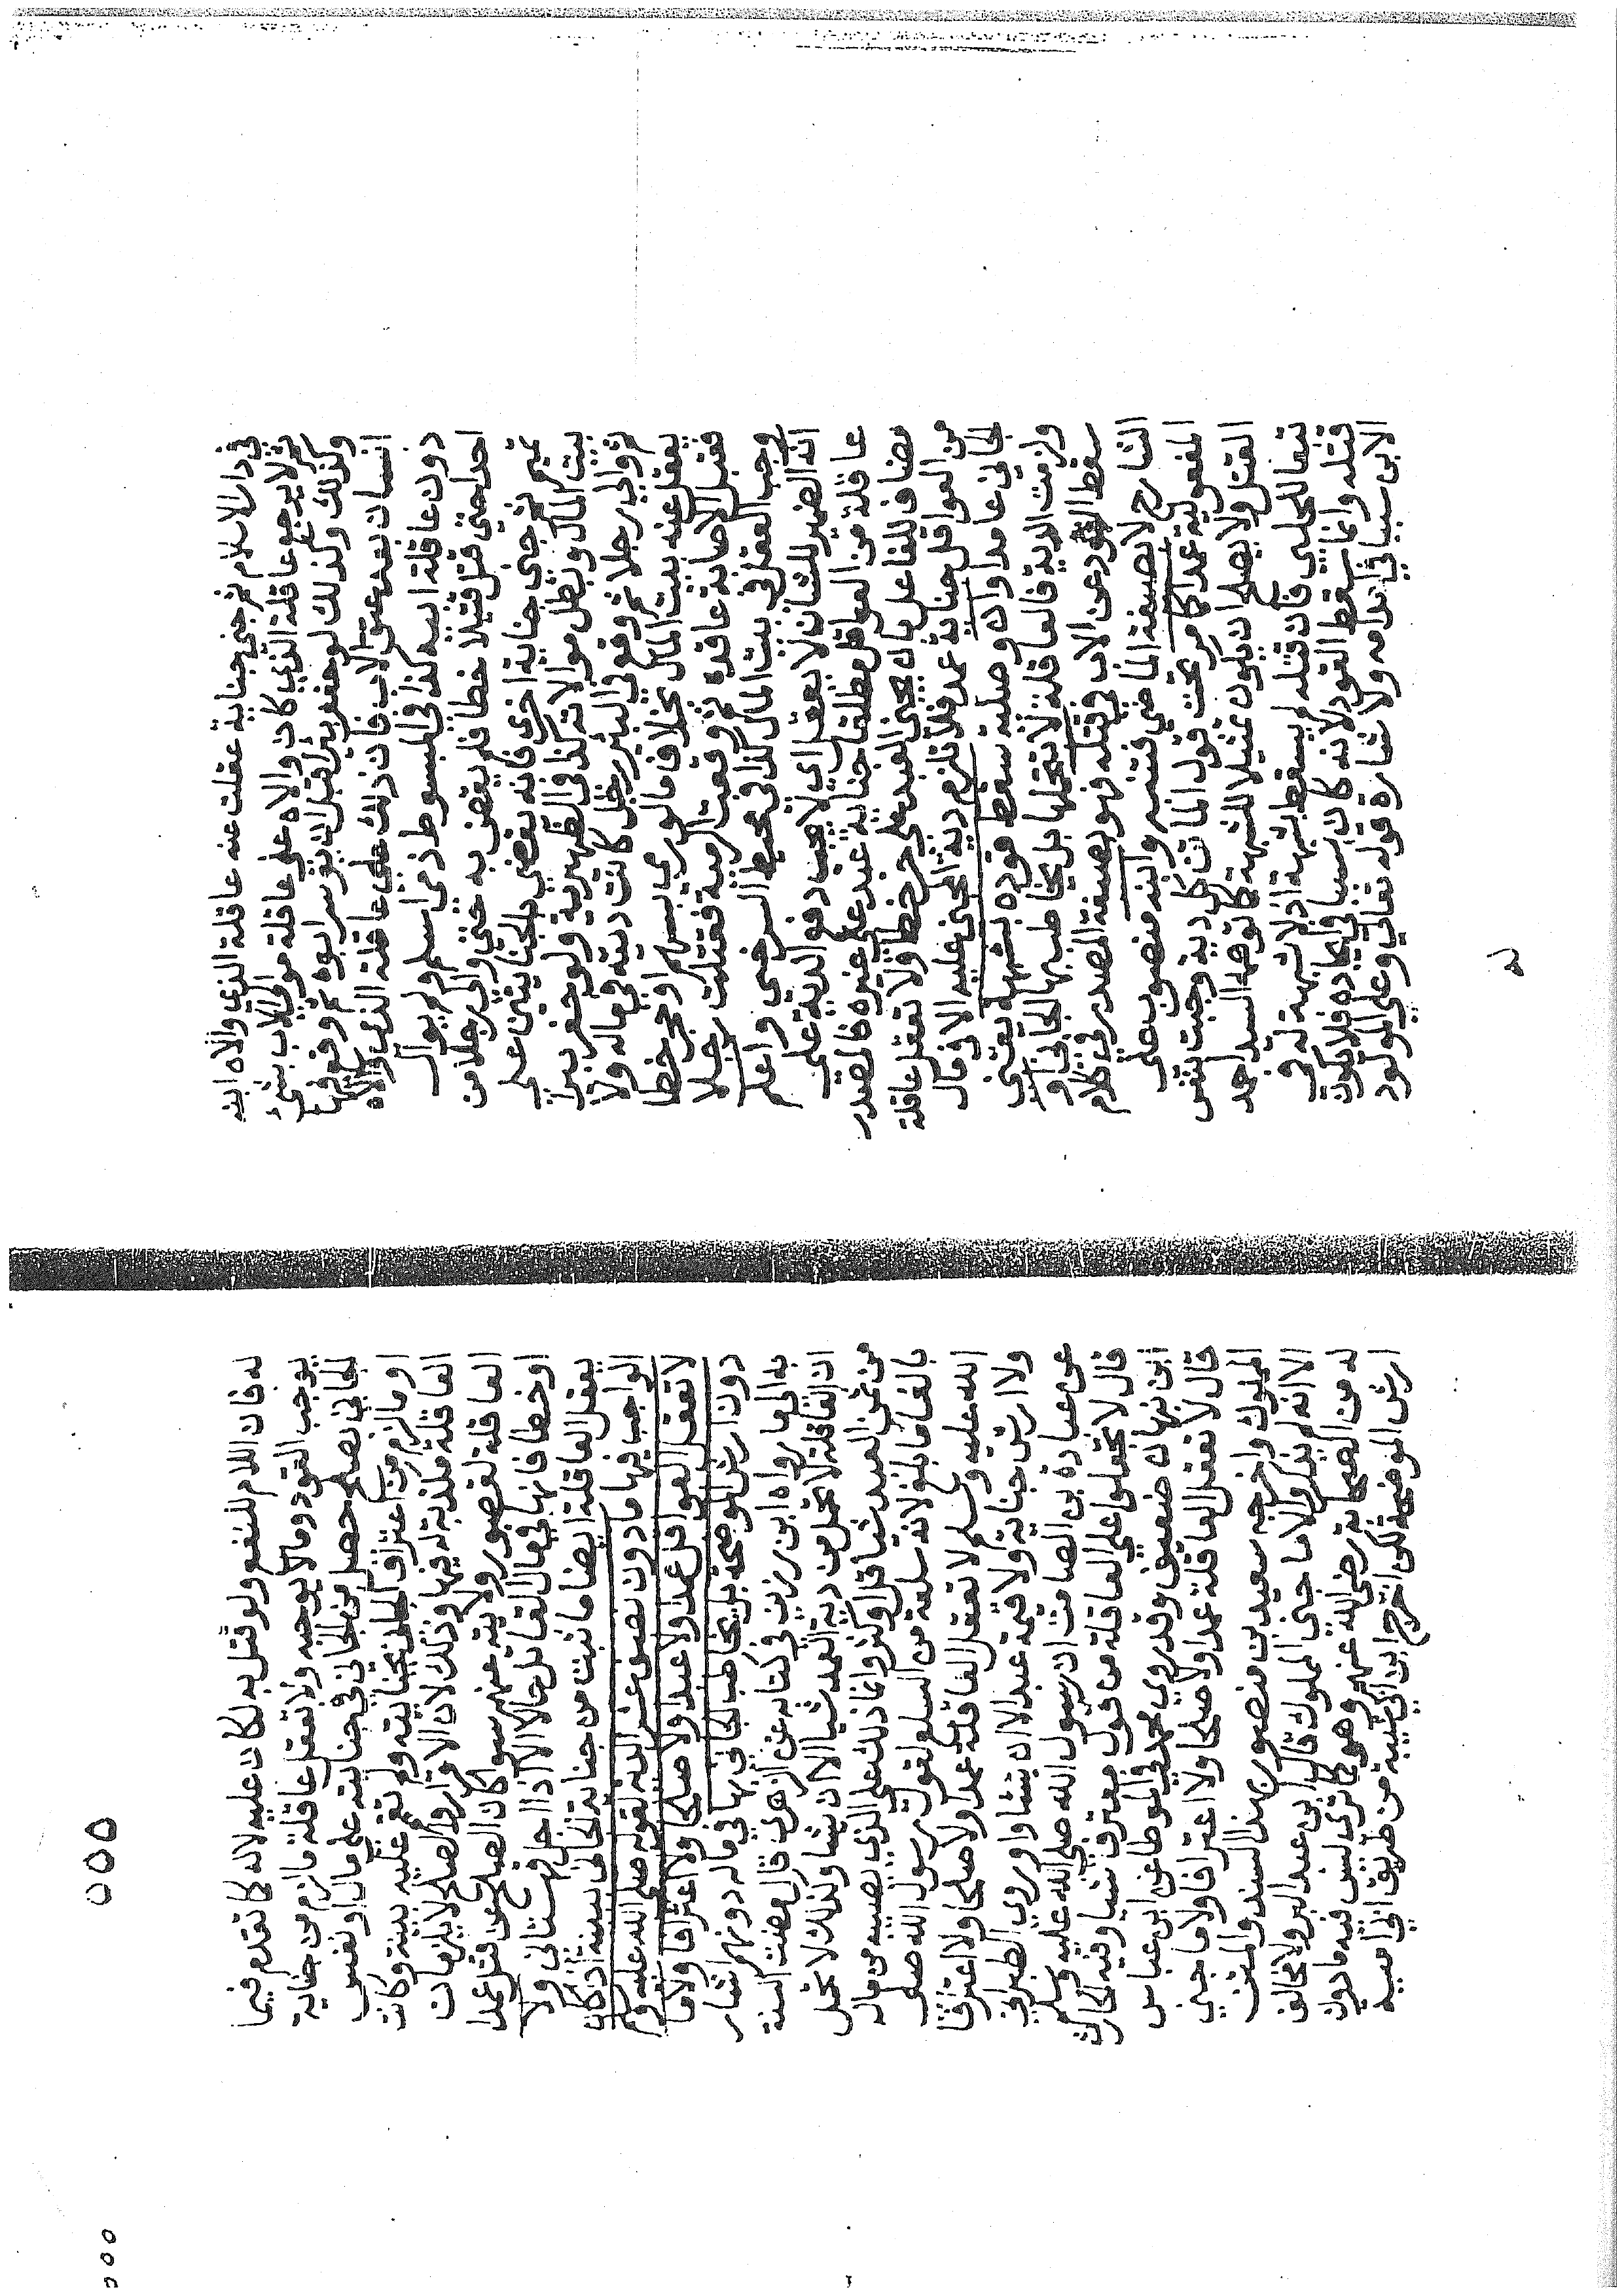 في دار الاسلام ثم جنى جناية عقلت عنه عاقلة الذي والاه ابنه
ثم لا يرجع عاقلة الذي كان والاه على عاقلة موالي الاب بشئ
وكذلك وكذلك لو حفر بئرا قبل ان يؤسر ابوه ثم وقع فيها
انسان بعد عتق الاب فان ذلك على عاقلة الذي والاه
دون عاقلة ابيه كذا في المبسوط ذمي اسلم ولم يوال
احدا حتى قتل قتيلا خطا فلم يقض به حتى والى رجلا من
تميم ثم جنى جناية اخرى فانه يقضي بالجنايتين على
بيت المال وبطل موالاته كذا في الظهيرية ولو حفر بيرا
ثم والى رجلا ثم وقع في البئر رجل كانت ديته في ماله ولا
يعقل عنه بيت المال بخلاف ما لو رمى بسهم او حجر خطا
فقبل الاصابة عاقده ثم وقعت الرمية فقتلت رجلا
وجب العقل في بيت المال كذا في محيط السرخسي واعلم
انه الضمير للشان لا يعقل اي لا يجب دفع الدية على
عاقلة من العواقل مطلقا جناية عبد على غيره فالمصدر
مضاف للفاعل بان يجني العبد على حر خطا ولا تعقل عاقلة
من العواقل جناية عمد فلا تلزم دية المجنى عليه الا في مال
الجاني عامدا وان وصلية سقط قوده بشبهة يعني
ولزمت الدية فالعاقلة لا تتحملها بل يخاطب بها الجاني او
سقط القود عن الاب في قتله فهو بصيغة المصدر في كلام
الشارح لا بصيغة الماضي فتنبه وابنه منصوب على
المفعولية عمدا كما مر تحت قول الماتن كل دية وجبت بنفس
القتل ولا يصلح ان يكون تمثيلا للشبهة كما توهمه السيد احمد
تبعا للحلبي فان قتله لم يسقط بشبهة اذ لا شبهة له في
قتله وانما سقط القود لانه كان سببا في ايجاده فلا يكون
الابن سببا في اعدامه ولاشارة قوله تعالى وعلى المولود
له
٥٥٥
له فان اللام للنفع ولو قتل به لكان عليه لا له كما تقدم فيما
يوجب القود وما لا يوجبه ولا تعقل عاقلة ما لزم من جناية
الجاني بصلح حصل من الجاني في جنايته على مال او نفس
او ما لزم من اعتراف الجاني بجنايته ولم تقم عليه بينة وكانت
العاقلة مكذبة له فيها وذلك لان الاقرار والصلح لا يلزمان
العاقلة لقصور ولايته عنهم سوا كان الصلح عن قتل عمد
او خطا فانها في مال القاتل حالا الا اذا اجل قهستاني ولا
يعقل العاقلة ايضا ما ثبت من جناية الجاني ببينة اذ كان
الواجب فيها ما دون نصف عشر الدية لقوله صلى الله عليه وسلم
لا تعقل العواقل عمدا ولا عبدا ولا صلحا ولا اعترافا ولا ما
دون ارش الموضحة بل يخاطب الجاني بها في ماله دونهم اشار
به الى ما رواه ابن رزين في كتابه عن الزهري قال مضت السنة
ان العاقلة لا تحمل من دية العمد شيا الا ان يشا وكذلك لا تحمل
من ثمن العبد شيا قل او كثر وانما ذلك على الذي يصيبه من ماله
بالغا ما بلغ لانه سلعة من السلع لقول رسول الله صلى
الله عليه وسلم لا تعقل العاقلة عمدا ولا صلحا ولا اعترافا
ولا ارش جناية ولا قيمة عبد الا ان يشا وا وروى الطبراني
عن عبادة بن الصامت ان رسول الله صلى الله عليه وسلم
قال لا تجعلوا على العاقلة من قول معترف شيا وفيه الحارث
ابن نبهان ضعيف وقد روى محمد في الموطا عن ابن عباس
قال لا تعقل العاقلة عمدا ولا صلحا ولا اعترافا ولا ما جنى
المملوك واخرجه سعيد بن منصور بهذا السند والمتن
الا انه لم يذكر ولا ما جنى المملوك قال ابن عبد البر ولا مخالف
له من الصحابة رضي الله عنهم وهو كما ترى ليس فيه ما دون
ارش الموضحة لكن اخرج ابن ابي شيبة من طريق ابي امية